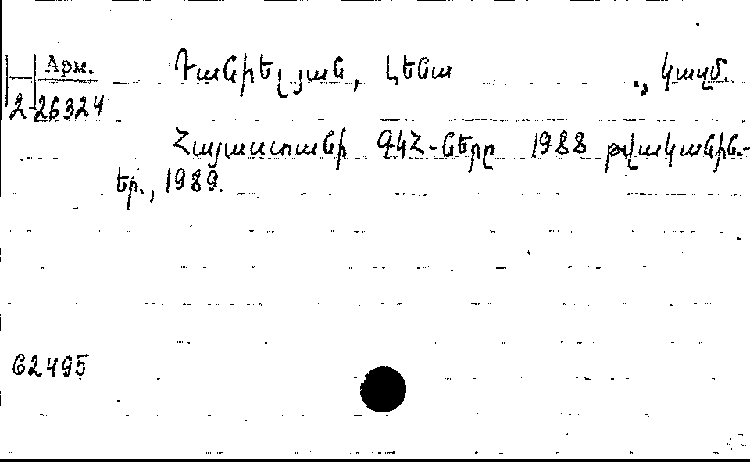 Арм.
Դանիելյան, Լենա ., կազմ.
2-26324
Հայաստանի ԳԿՀ-ները 1988 թվականին.-
եր., 1989.
62495